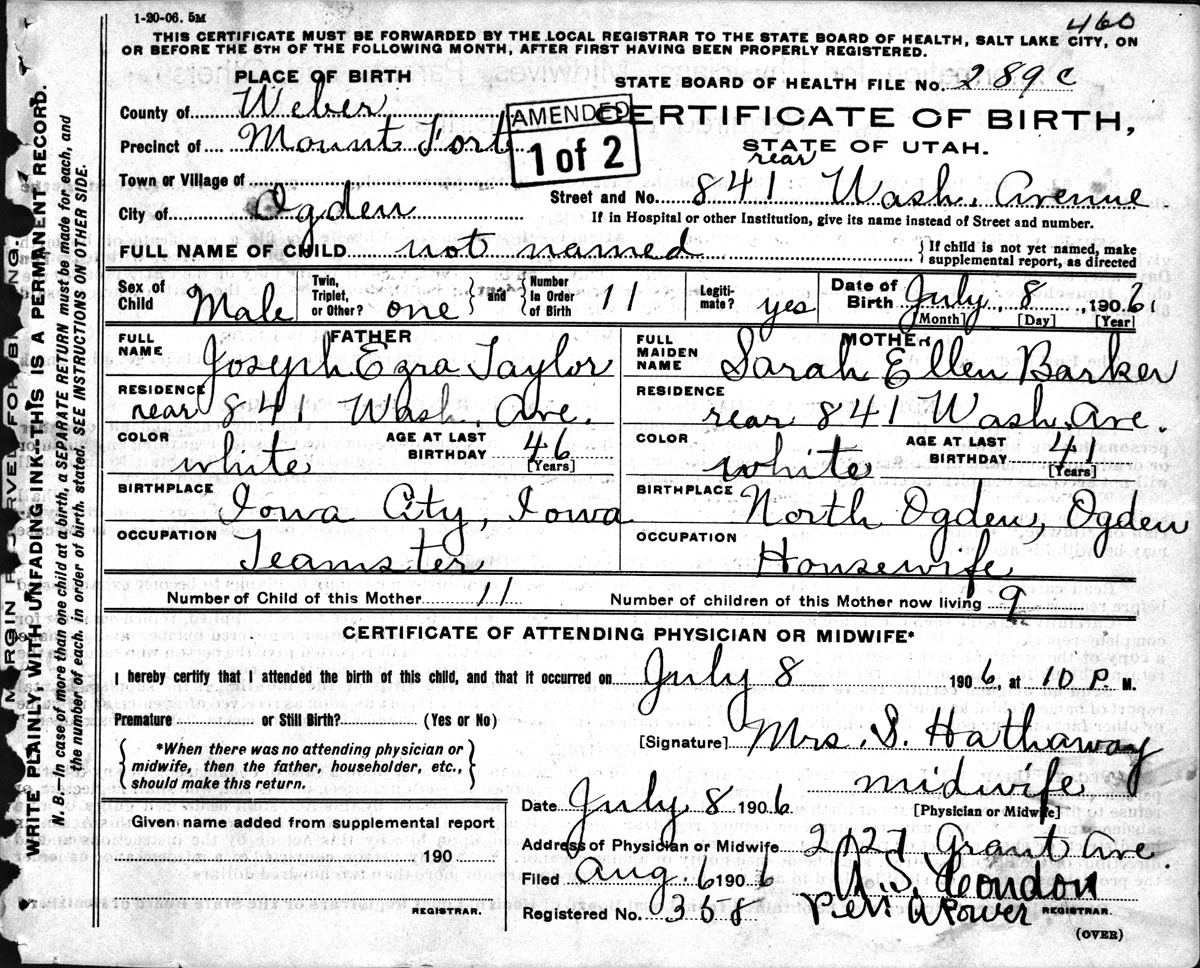 1-20-06. 5M
460
THIS CERTIFICATE MUST BE FORWARDED BY THE LOCAL REGISTRAR TO THE STATE BOARD OF HEALTH, SALT LAKE CITY, ON
OR BEFORE THE 5TH OF THE FOLLOWING MONTH, AFTER FIRST HAVING BEEN PROPERLY REGISTERED.
PLACE OF BIRTH
STATE BOARD OF HEALTH FILE No. 289 C
County of Weber
AMENDED
1 of 2
CERTIFICATE OF BIRTH,
Precinct of Mount Fort
STATE OF UTAH.
Town or Village of
rear
Street and No. 841 Wash. Avenue
City of Ogden
If in Hospital or other Institution, give its name instead of Street and number.
FULL NAME OF CHILD not named
If child is not yet named, make
supplemental report, as directed
Sex of Child Male
Twin, Triplet, or Other? one and Number in Order of Birth 11
Legiti-mate? yes
Date of Birth July 8, 1906
[Month] [Day] [Year]
FATHER
FULL NAME Joseph Ezra Taylor
RESIDENCE rear 841 Wash. Ave.
COLOR white
AGE AT LAST BIRTHDAY 46
[Years]
BIRTHPLACE Iowa City, Iowa
OCCUPATION Teamster
MOTHER
FULL MAIDEN NAME Sarah Ellen Barker
RESIDENCE rear 841 Wash. Ave.
COLOR white
AGE AT LAST BIRTHDAY 41
[Years]
BIRTHPLACE North Ogden, Ogden
OCCUPATION Housewife
Number of Child of this Mother 11
Number of children of this Mother now living 9
CERTIFICATE OF ATTENDING PHYSICIAN OR MIDWIFE*
I hereby certify that I attended the birth of this child, and that it occurred on July 8 1906, at 10 P. M.
Premature or Still Birth? (Yes or No)
*When there was no attending physician or
midwife, then the father, householder, etc.,
should make this return.
[Signature] Mrs. S. Hathaway
midwife
Date July 8 1906
[Physician or Midwife]
Given name added from supplemental report
190
REGISTRAR.
Address of Physician or Midwife 2127 Grant Ave.
Filed Aug. 6 1906
Condon
Registered No. 358
Power
REGISTRAR.
(OVER)
WRITE PLAINLY, WITH UNFADING INK-THIS IS A PERMANENT RECORD.
N. B.-In case of more than one child at a birth, a SEPARATE RETURN must be made for each, and
the number of each, in order of birth, stated. SEE INSTRUCTIONS ON OTHER SIDE.